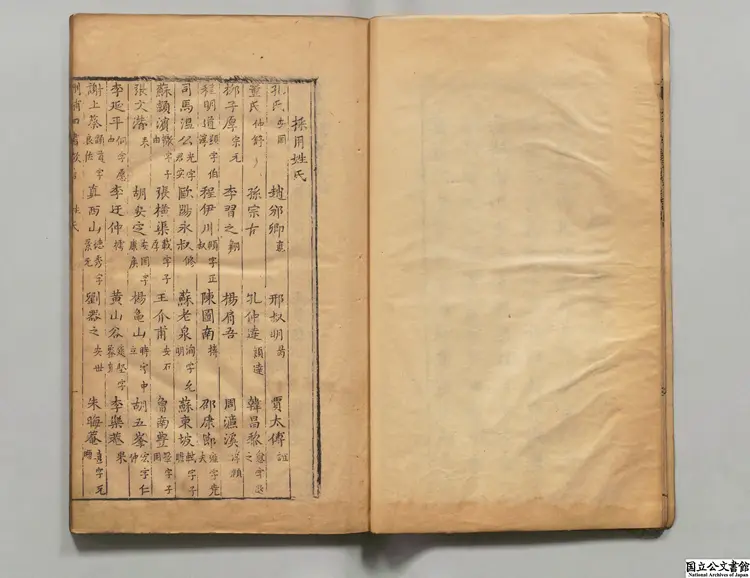 採用姓氏
孔氏 安國 趙邠卿 邢叔明 昺 賈太傅 誼
董氏 仲舒 孫宗古 孔仲逵 穎達 韓昌黎 愈字退之
柳子厚 宗元 李習之 翱 楊肩吾 周濂溪
程明道 顥字伯淳 程伊川 頤字正叔 陳圖南 摶 邵康節 雍字堯夫
司馬溫公 光字君實 歐陽永叔 修 蘇老泉 洵字允明 蘇東坡 軾字子瞻
蘇頴濱 轍字子由 張橫渠 載字子厚 王介甫 安石 曾南豐 鞏字子固
張文潛 耒 胡安定 安國字康侯 楊龜山 時字中立 胡五峯 宏字仁仲
李延平 侗字愿中 李迂仲 樗 黃山谷 庭堅字魯直 李樂菴
謝上蔡 顯道字良佐 真西山 德秀字景元 劉器之 安世 朱晦菴 熹字元晦
国立公文書館
National Archives of Japan